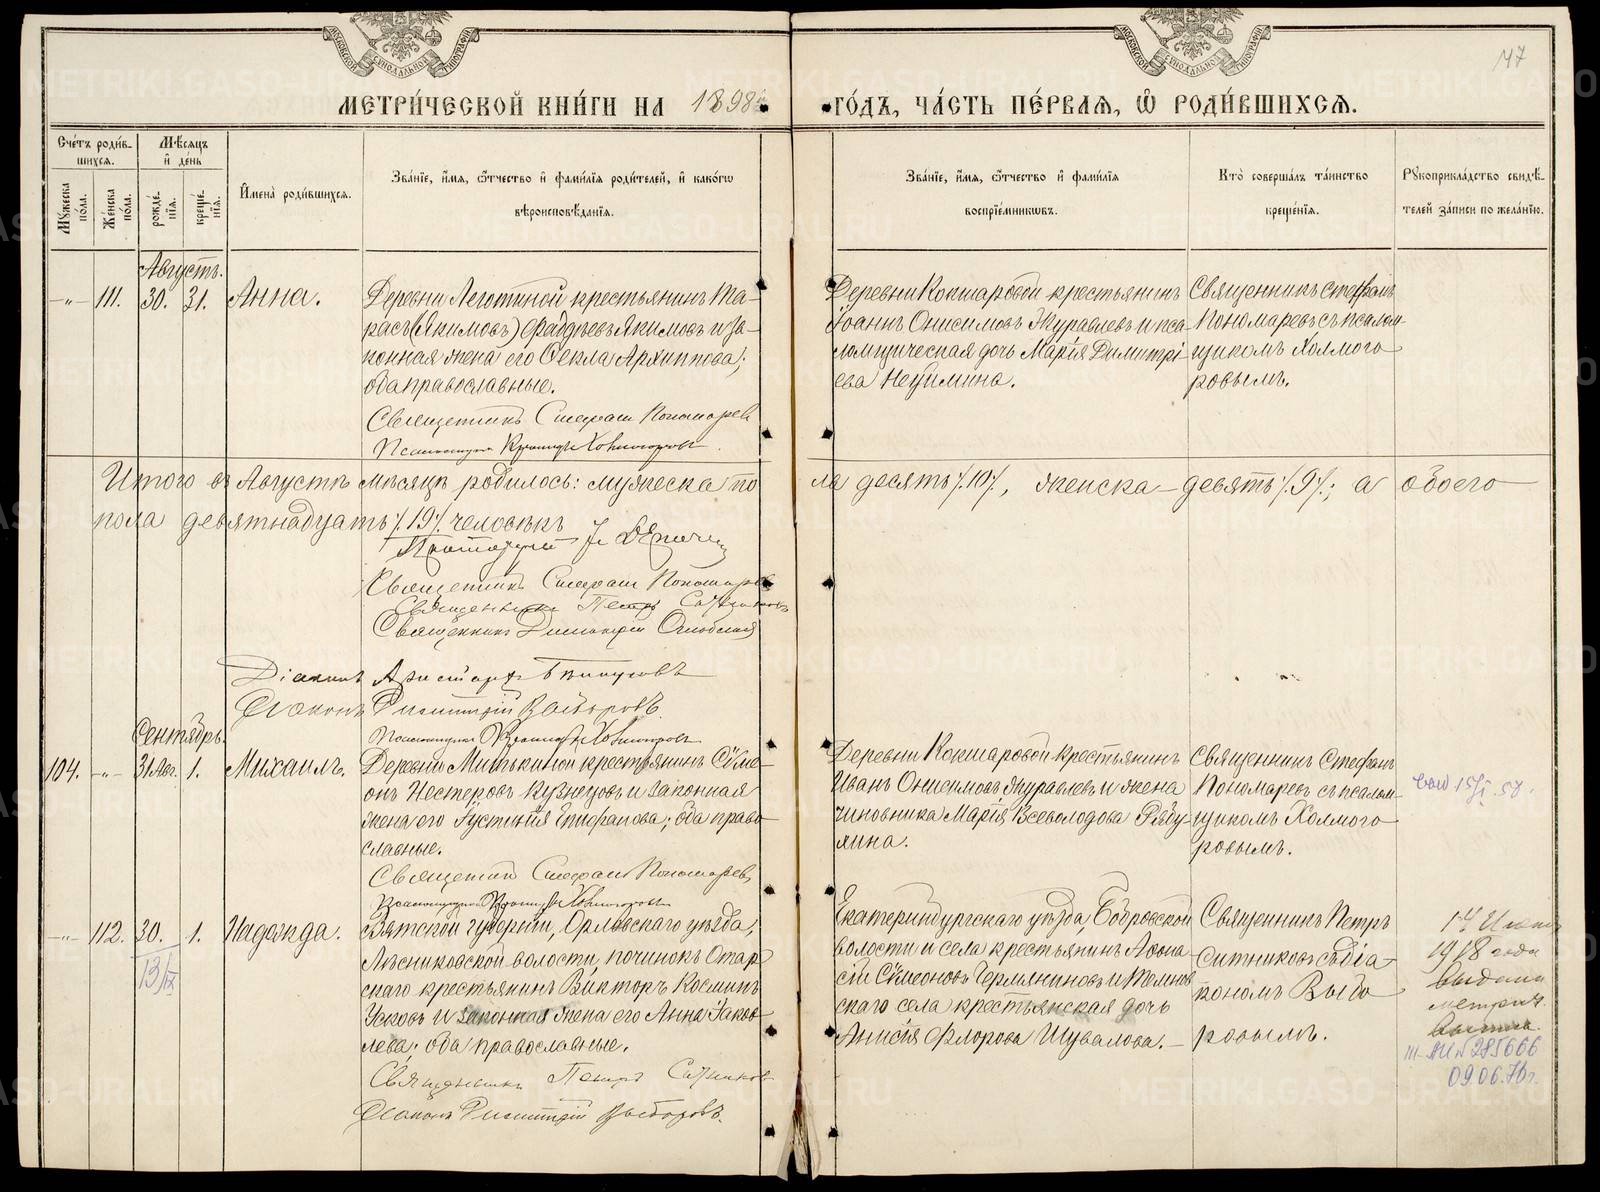 МОСКОВСКОЙ СѴНОДАЛЬНОЙ ТИПОГРАФІИ
МОСКОВСКОЙ СѴНОДАЛЬНОЙ ТИПОГРАФІИ
МЕТРИ́ЧЕСКОЙ КНИ́ГИ НА 1898 ГО́ДЪ, ЧА́СТЬ ПЕ́РВАЯ, Ѽ РОДИ́ВШИХСЯ.
Сче́тъ роди́в-
шихся.
Мѣ́сяцъ
и҆ де́нь
Мꙋ́жеска по́ла.
Же́нска по́ла.
рожде́-
нїя.
креще́-
нїя.
И҆мена̀ роди́вшихся.
Зва́нїе, и҆́мя, ѻ҆́тчество и҆ фами́лїя роди́телей, и҆ како́гѡ
вѣроисповѣ́данїя.
Зва́нїе, и҆́мя, ѻ҆́тчество и҆ фами́лїя
воспрїе́мникѡвъ.
Кто̀ соверша́лъ та́инство
креще́нїя.
Рꙋкоприкла́дство свидѣ́-
телей за́писи по жела́нїю.
Августъ.
—„— 111. 30. 31. Анна.
Деревни Леготиной крестьянинъ Та-
расъ (Якимовъ) Фаддѣевъ Якимовъ и за-
конная жена его Ѳекла Архиппова;
оба православные.
Священникъ Стефанъ Пономаревъ
Псаломщикъ Холмогоровъ
Деревни Кокшаровой крестьянинъ
Іоаннъ Онисимовъ Журавлевъ и пса-
ломщическая дочь Марія Димитрі-
ева Неуймина.
Священникъ Стефанъ
Пономаревъ съ псалом-
щикомъ Холмого
ровымъ.
Итого въ Августѣ мѣсяцѣ родилось: мужеска по
ла десять /.10/., женска — девять /.9/.; а обоего
пола девятнадцать /.19/. человѣкъ
Священникъ Стефанъ Пономаревъ
Священникъ Петръ Ситниковъ
Священникъ Димитрій
Діаконъ Аристархъ
Діаконъ Выборовъ
Псаломщикъ Холмогоровъ
Сентябрь.
104. —„— 31 Авг. 1. Михаилъ.
Деревни Митькиной крестьянинъ Сѵме-
онъ Нестеровъ Кузнецовъ и законная
жена его Іустинія Епифанова; оба право
славные.
Священникъ Стефанъ Пономаревъ
Псаломщикъ Холмогоровъ
Деревни Кокшаровой крестьянинъ
Иванъ Онисимовъ Журавлевъ и жена
чиновника Марія Всеволодова Рябу-
хина.
Священникъ Стефанъ
Пономаревъ съ псалом-
щикомъ Холмого
ровымъ.
—„— 112. 30. 1. Надежда.
13/IX
Вятской губерніи, Орловскаго уѣзда,
Лѣсниковской волости, починокъ Отар
скаго крестьянинъ Викторъ Косминъ
Усковъ и законная жена его Анна Іаков
лева; оба православные.
Священникъ Петръ Ситниковъ
Діаконъ Выборовъ.
Екатеринбургскаго уѣзда, Бобровской
волости и села крестьянинъ Аѳана
сій Сѵмеоновъ
скаго села крестьянская дочь
Анисія Флорова Шувалова.—
Священникъ Петръ
Ситниковъ съ діа-
кономъ Выбо
ровымъ.
1918 года
III-АИ № 285666
09.06.76г.
METRIKI.GASO-URAL.RU